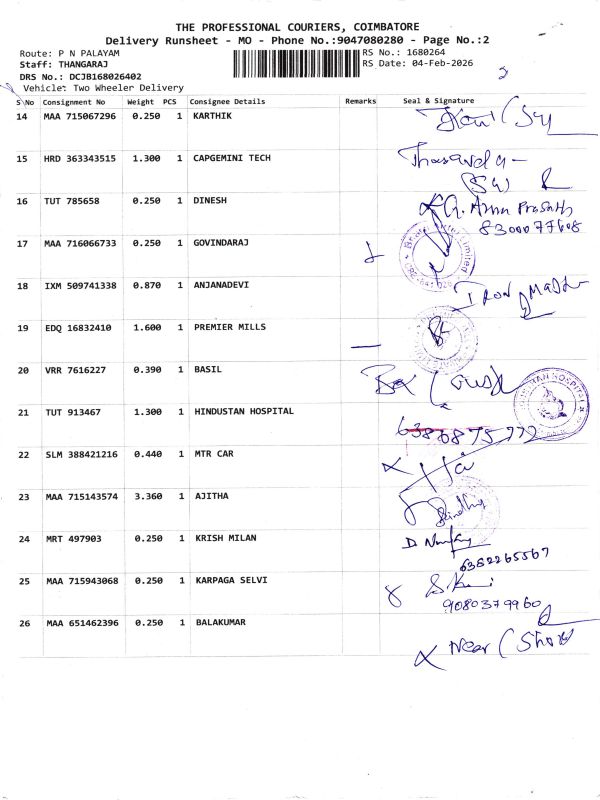 THE PROFESSIONAL COURIERS, COIMBATORE
Delivery Runsheet - MO - Phone No.:9047080280 - Page No.:2
Route: P N PALAYAM
RS No.: 1680264
Staff: THANGARAJ
RS Date: 04-Feb-2026
DRS No.: DCJB168026402
Vehicle: Two Wheeler Delivery
S No Consignment No Weight PCS Consignee Details Remarks Seal & Signature
14 MAA 715067296 0.250 1 KARTHIK
15 HRD 363343515 1.300 1 CAPGEMINI TECH
16 TUT 785658 0.250 1 DINESH
8300077608
17 MAA 716066733 0.250 1 GOVINDARAJ
18 IXM 509741338 0.870 1 ANJANADEVI
19 EDQ 16832410 1.600 1 PREMIER MILLS
20 VRR 7616227 0.390 1 BASIL
21 TUT 913467 1.300 1 HINDUSTAN HOSPITAL
22 SLM 388421216 0.440 1 MTR CAR
23 MAA 715143574 3.360 1 AJITHA
24 MRT 497903 0.250 1 KRISH MILAN
6382265567
25 MAA 715943068 0.250 1 KARPAGA SELVI
9080379960
26 MAA 651462396 0.250 1 BALAKUMAR
Near